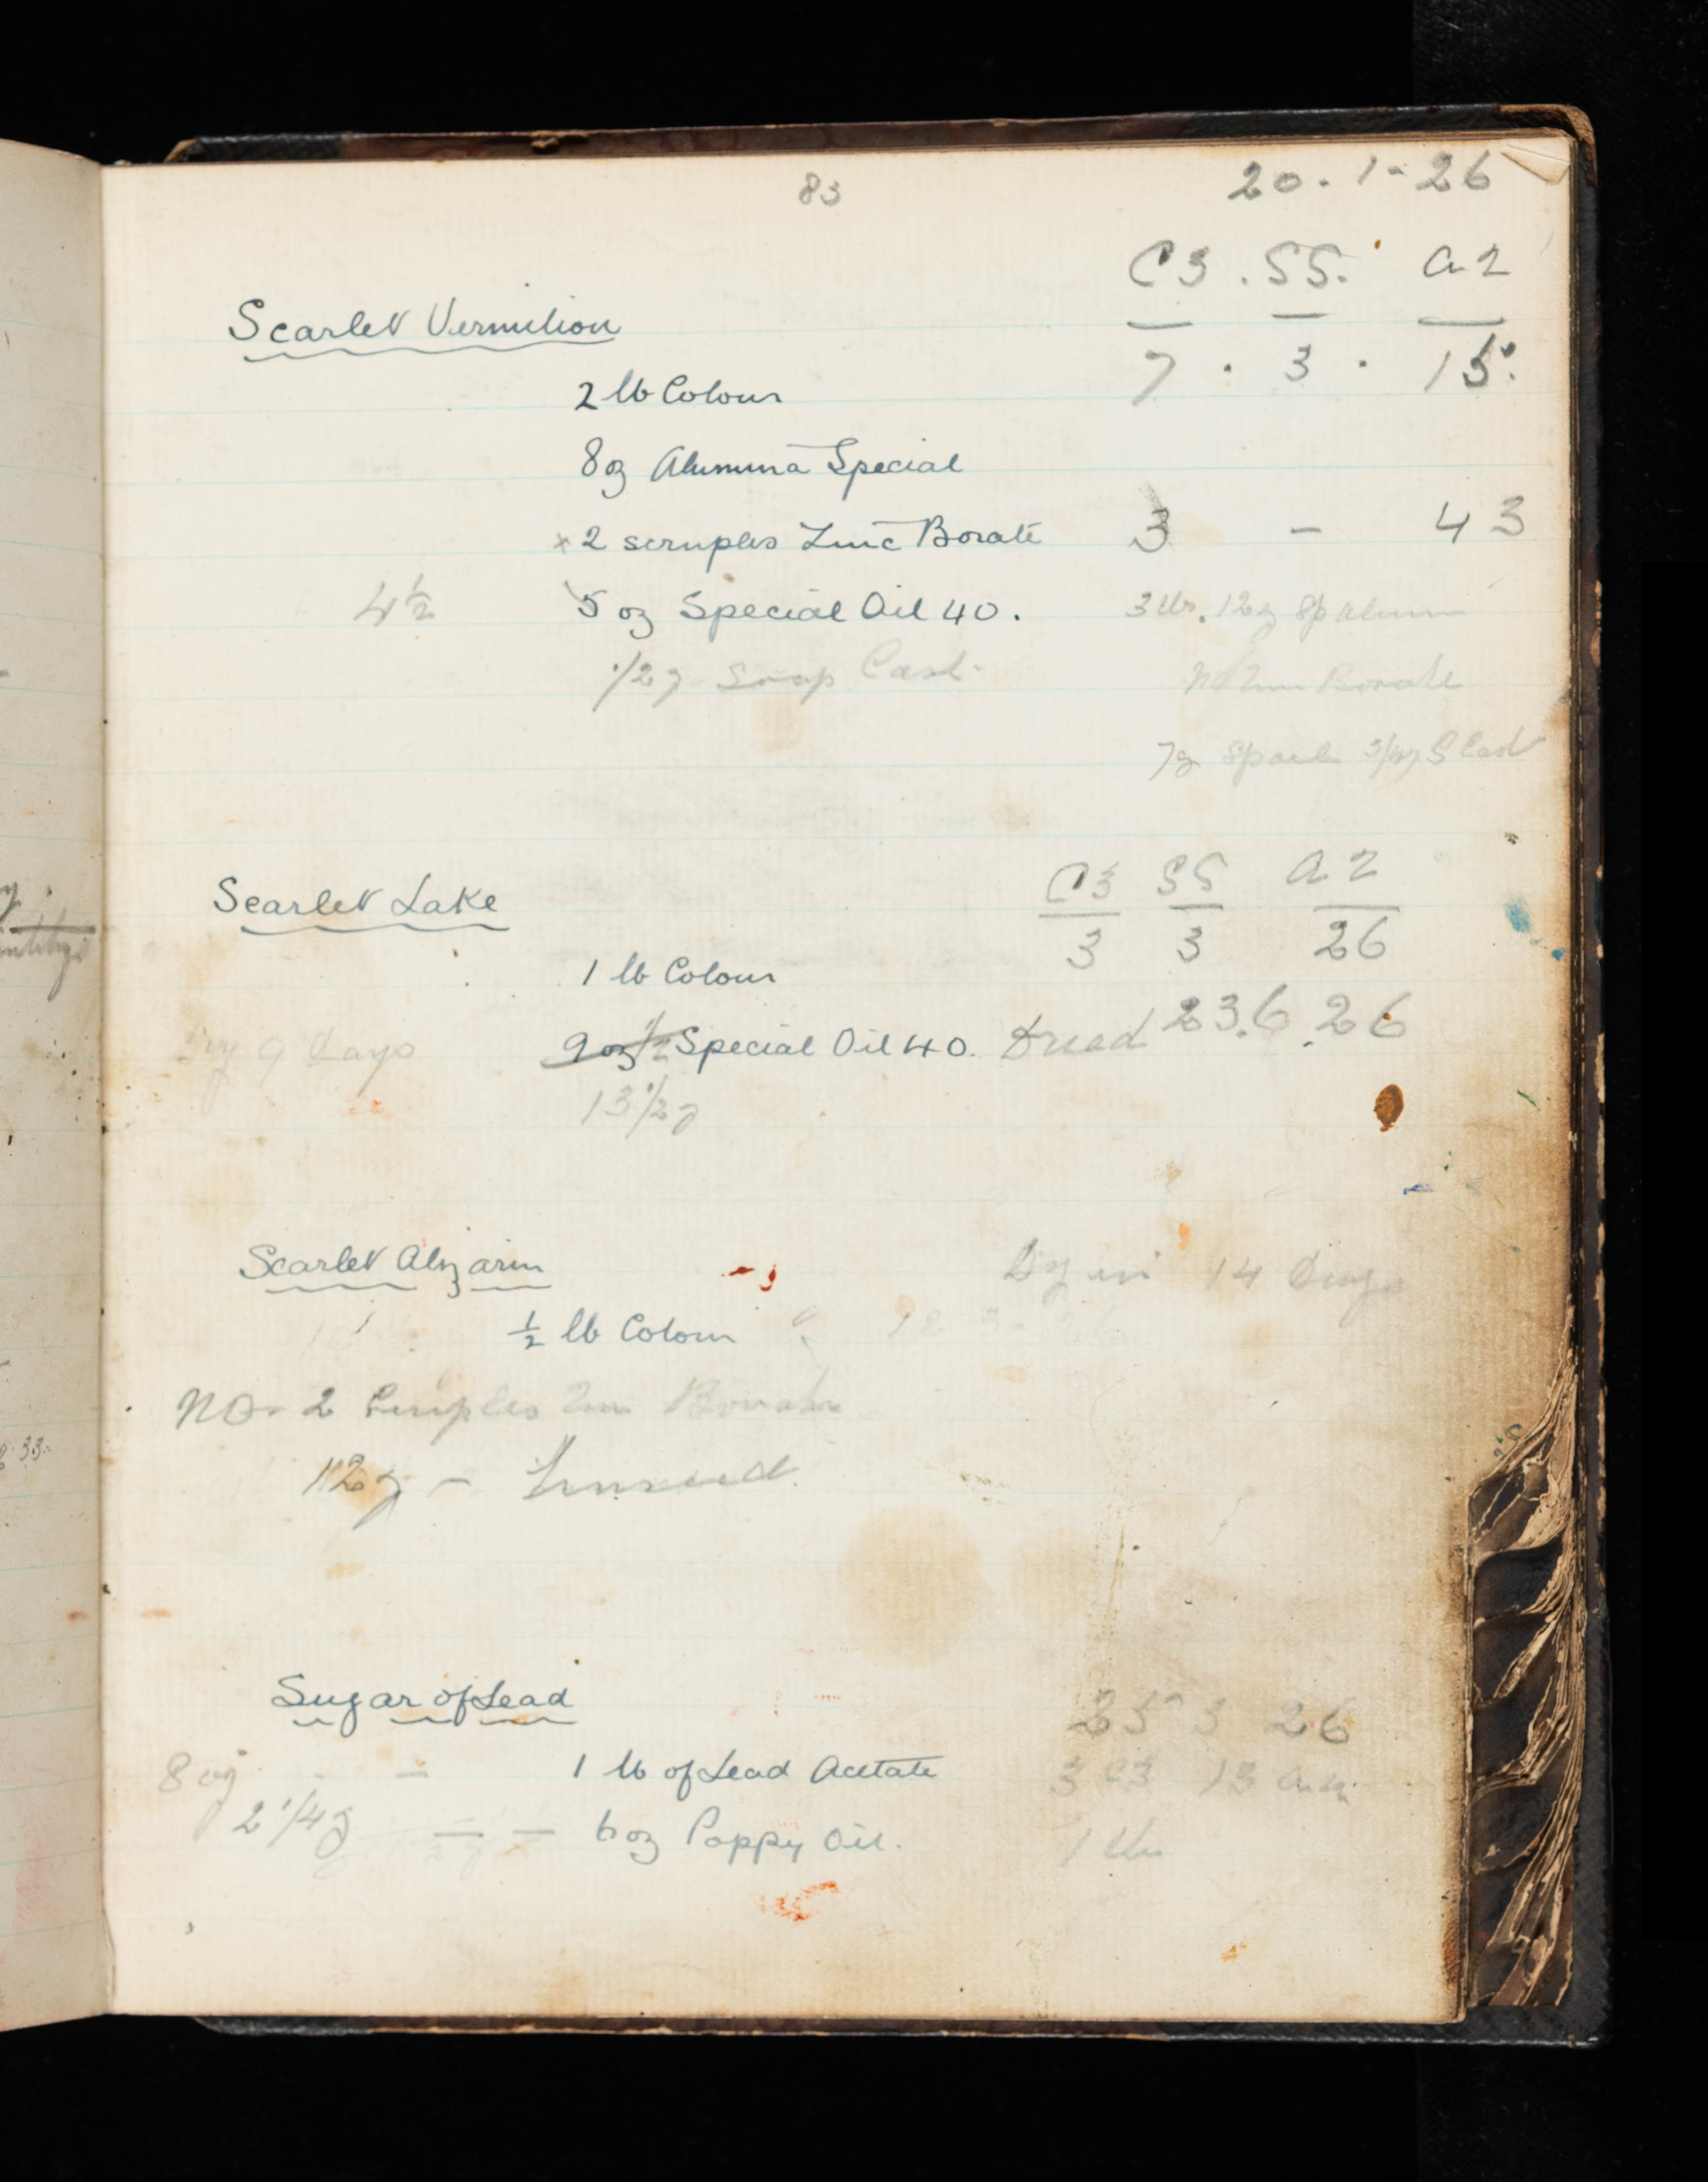 83
20. 1-26
C3 . SS. A2
Scarlet Vermilion
7 . 3 . 15.
2 lb Colour
8 oz Alumina Special
x 2 scruples Zinc Borate 3 - 43
4 1/2 5 oz Special Oil 40. 3 lbs. 12oz Sp Alum
1/2 oz Soap Cast. No Zinc Borate
C3 SS A2
Scarlet Lake
3 3 26
1 lb Colour
9 oz 1/2 Special Oil 40. 23.6.26
Dry 9 Days
13 1/2 oz
Scarlet Alizarin
Dry in 14 Days
1/2 lb Colour
No 2 Scruples Zinc Borate
Linseed.
Sugar of Lead
25 3 26
8 oz - 1 lb of Lead Acetate
3 C3 13
2 1/4 oz - - 6 oz Poppy Oil.
1 lb